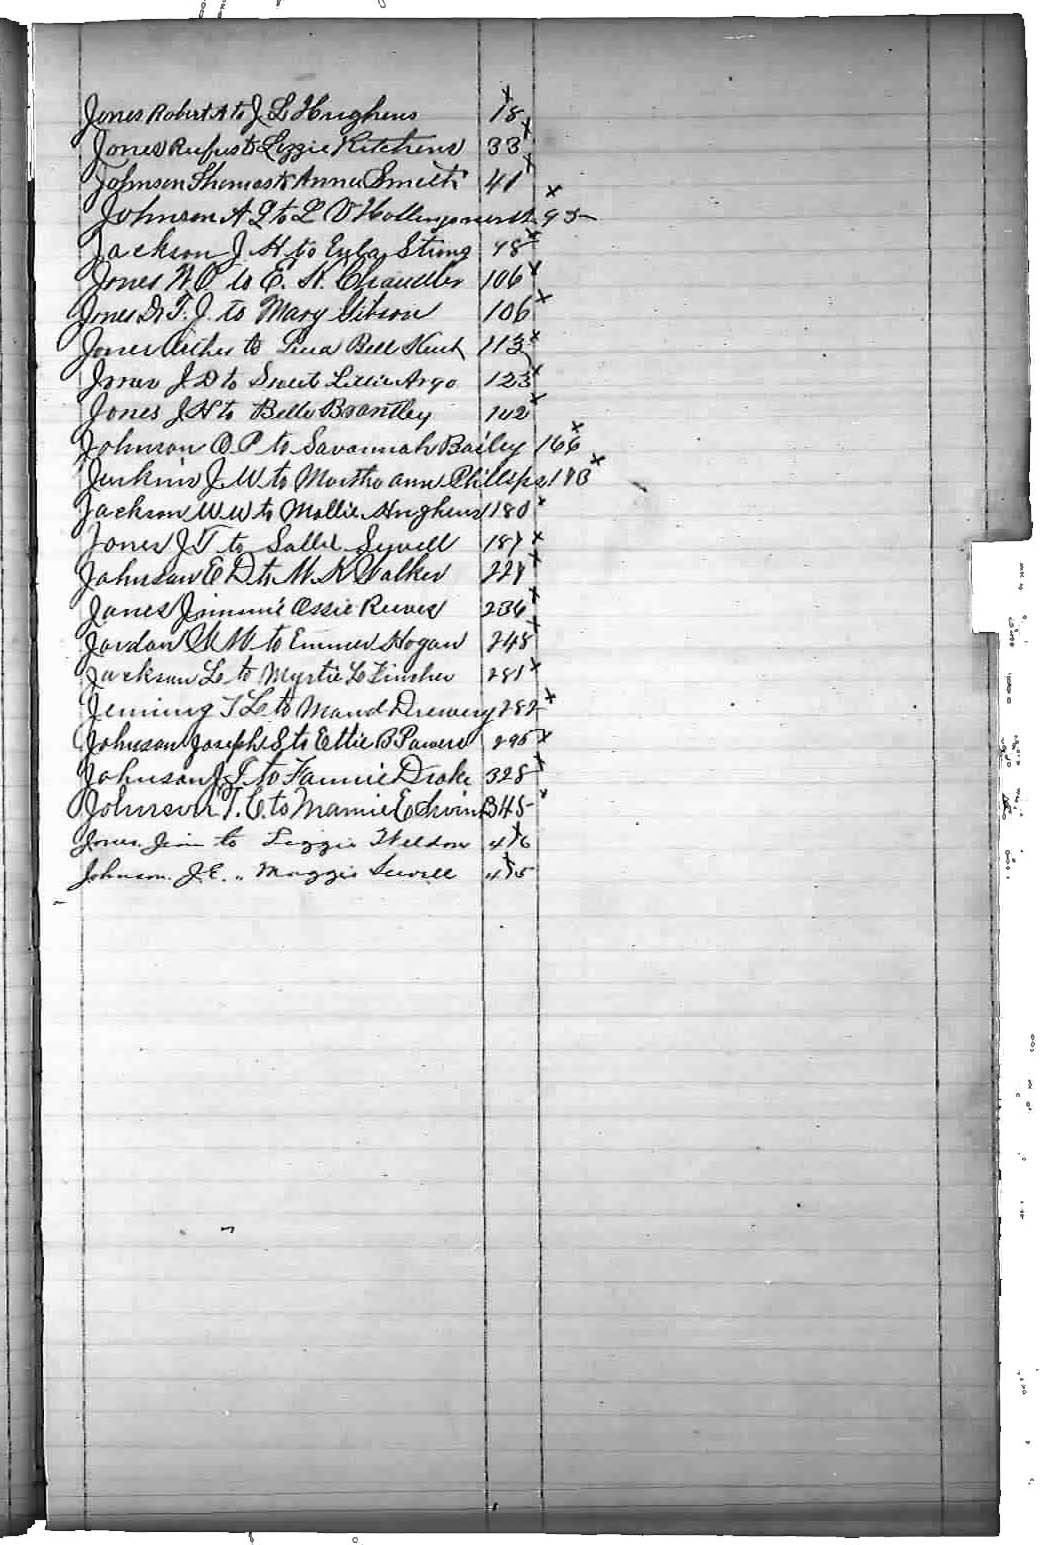 Jones Robert A to J. L Hughens 18
Jones Rufus to Lizzie Kitchens 33
Johnson Thomas to Anna Smith 41
Johnson A L to L V Hollingsworth 95
Jackson J. H to Eula Strong 98
Jones W. O. to E. K. Chandler 106
Jones Dr T. J. to Mary Gibson 106
Jones Arther to Bell 113
Jones J. D to Sweet Lillie Argo 123
Jones J H to Belle Brantley 142
Johnson O. P. to Savannah Bailey 166
Jenkins J. W to Martha ann Phillips 173
Jackson W. W to Mollie Hughens 180
Jones J. T to Sallie Sewell 187
Johnson E D to M. K Walker 227
Jones Jimmie Ossie Reeves 236
Jordan W to Emmer Hogan 248
Jackson L to Myrtie L Fincher 281
Jenning T L to Maud Drewery 282
Johnson Joseph S to Ettie B Powers 295
Johnson J. T. to Fannie Drake 328
Johnson T. C. to Mamie E 345
Jones Jim to Lizzie Weldon
Johnson J. E. " Maggie Sewell